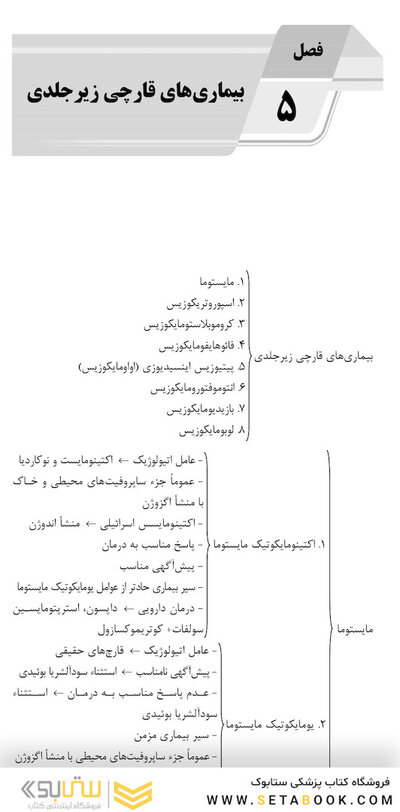 فصل
۵
بیماری‌های قارچی زیرجلدی
بیماری‌های قارچی زیرجلدی
۱. مایستوما
۲. اسپوروتریکوزیس
۳. کروموبلاستومایکوزیس
۴. فائوهایفومایکوزیس
۵. پیتیوزیس اینسیدیوزی (اواومایکوزیس)
۶. انتوموفتورومایکوزیس
۷. بازیدیومایکوزیس
۸. لوبومایکوزیس
مایستوما
۱. اکتینومایکوتیک مایستوما
- عامل اتیولوژیک ← اکتینومایست و نوکاردیا
- عموماً جزء ساپروفیت‌های محیطی و خاک
با منشأ اگزوژن
- اکتینومایسس اسرائیلی ← منشأ اندوژن
- پاسخ مناسب به درمان
- پیش‌آگهی مناسب
- سیر بیماری حادتر از عوامل یومایکوتیک مایستوما
- درمان دارویی ← داپسون، استرپتومایسین
سولفات+ کوتریموکسازول
۲. یومایکوتیک مایستوما
- عامل اتیولوژیک ← قارچ‌های حقیقی
- پیش‌آگهی نامناسب ← استثناء سودآلشریا بوئیدی
- عدم پاسخ مناسب به درمان ← استثناء
سودآلشریا بوئیدی
- سیر بیماری مزمن
- عموماً جزء ساپروفیت‌های محیطی با منشأ اگزوژن
فروشگاه کتاب پزشکی ستابوک
WWW.SETABOOK.COM
ستابوک
فروشگاه اینترنتی کتاب